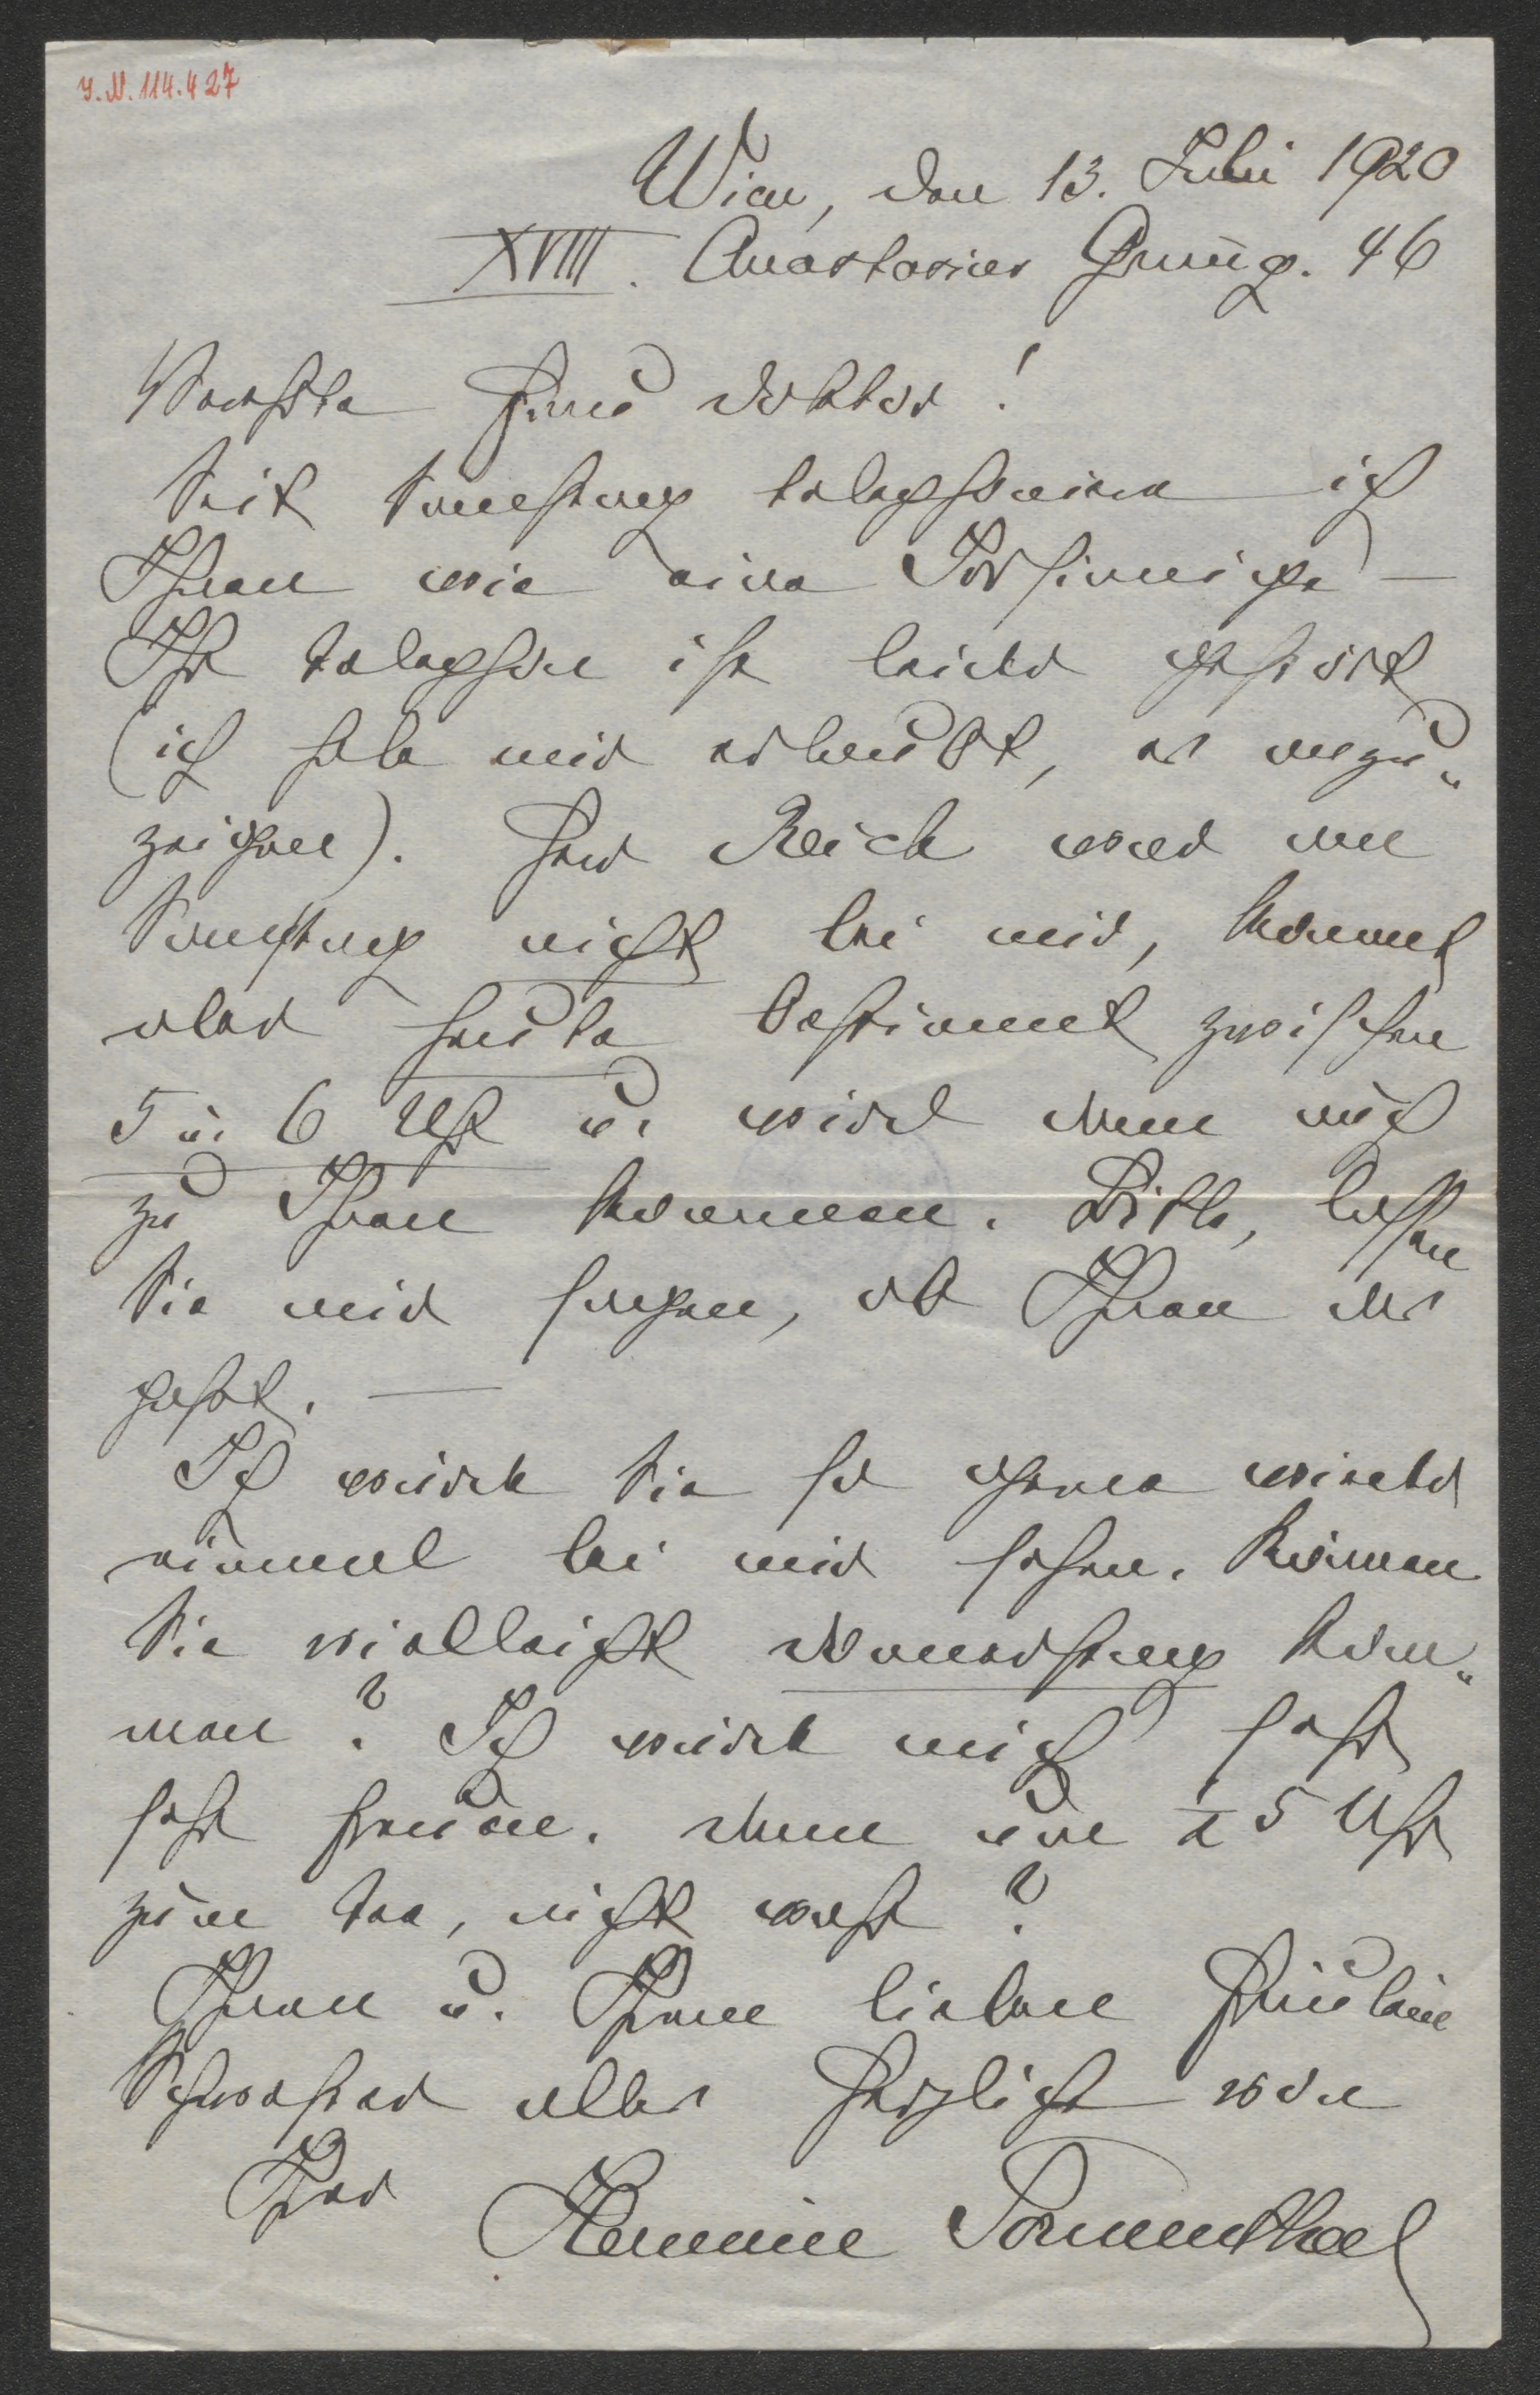 J.N. 114.427
Wien, den 13. Juli 1920
XVIII. Anastasius Grüng. 46
Verehrte Frau Doktor!
Seit Samstag telephoniere ich
Ihnen wie eine Irrsinnige –
Ihr Telephon ist leider gestört
(ich habe mir erlaubt, es anzu„
zeigen). Herr Reich war am
Samstag nicht bei mir, kommt
aber heute bestimmt zwischen
5 u. 6 Uhr u. wird dann auch
zu Ihnen kommen. Bitte, lassen
Sie mir sagen, ob Ihnen das
paßt. —
Ich würde Sie so gerne wieder
einmal bei mir sehen. Können
Sie vielleicht Donnerstag kom„
men? Ich würde mich sehr
sehr freuen. Dann um ½ 5 Uhr
zum Tee, nicht wahr?
Ihnen u. Ihrem lieben Fräulein
Schwester alles Herzliche von
Ihrer
Hermine Sonnenthal